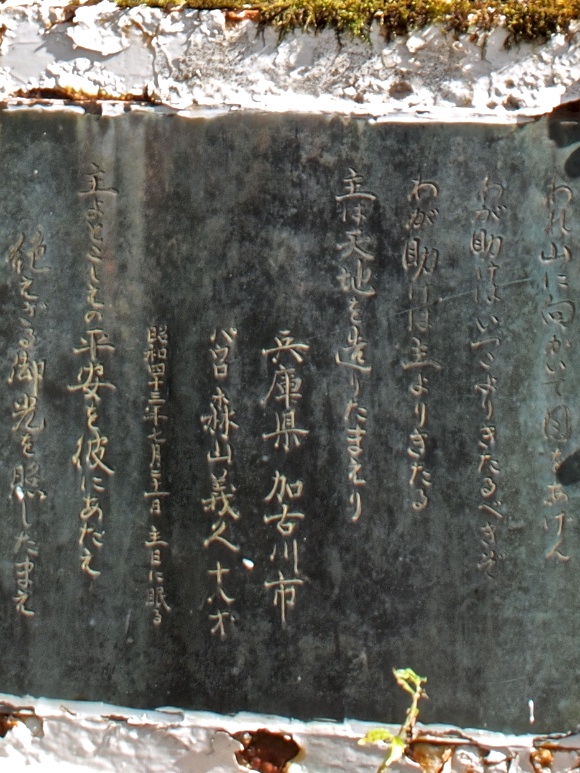 われ山に向かいて目をあげん
わが助けはいづくよりきたるべきぞ
わが助けは主よりきたる
主は天地を造りたまえり
兵庫県 加古川市
パウロ 森山義久 十八才
昭和四十三年七月二十一日 主日に眠る
主よとこしえの平安を彼にあたえ
絶えざる御光を照したまえ